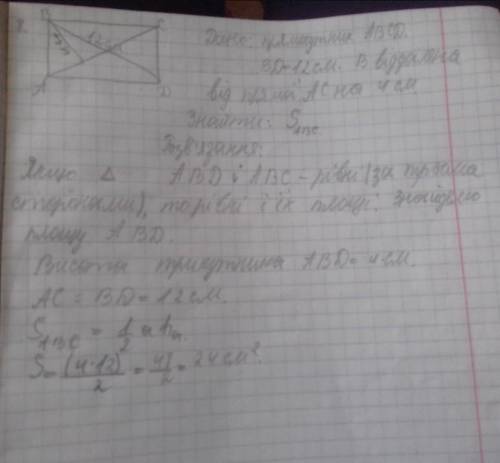 B C
12см
4см
A D
Дано: прямокутник ABCD.
BD=12см. B віддалена
від прямої AC на 4см
Знайти: S ABC
Розв'язання:
Якщо Δ ABD і ABC - рівні (за трьома
сторонами), то рівні і їх площі. Знаходимо
площу ABD.
Висота трикутника ABD = 4см.
AC = BD = 12см.
S ABC = 1/2 a hₐ
S = (4·12)/2 = 48/2 = 24см².